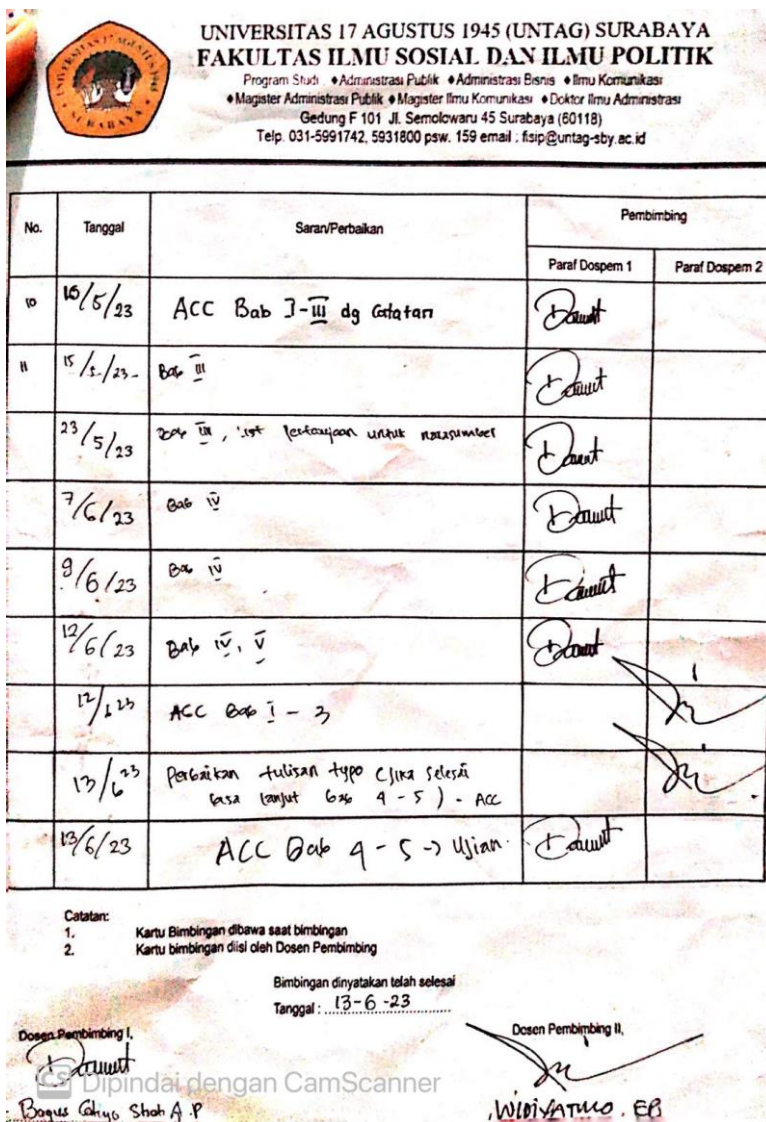 UNIVERSITAS 17 AGUSTUS 1945 (UNTAG) SURABAYA
FAKULTAS ILMU SOSIAL DAN ILMU POLITIK
Program Studi : ♦Administrasi Publik ♦Administrasi Bisnis ♦Ilmu Komunikasi
♦Magister Administrasi Publik ♦Magister Ilmu Komunikasi ♦Doktor Ilmu Administrasi
Gedung F 101 Jl. Semolowaru 45 Surabaya (60118)
Telp. 031-5991742, 5931800 psw. 159 email : fisip@untag-sby.ac.id
UNIVERSITAS 17 AGUSTUS 1945
SURABAYA
No. Tanggal Saran/Perbaikan Pembimbing
Paraf Dospem 1 Paraf Dospem 2
10 15/5/23 ACC Bab I-III dg Catatan
11 15/5/23- Bab III
23/5/23 Bab III, list untuk narasumber
7/6/23 Bab IV
9/6/23 Bab IV
12/6/23 Bab IV, V
12/6 23 ACC Bab I - 3
13/6 23 Perbaikan tulisan typo (Jika selesai
bisa lanjut bab 4 - 5 ) - ACC
13/6/23 ACC Bab 4 - 5 -> Ujian.
Catatan:
1. Kartu Bimbingan dibawa saat bimbingan
2. Kartu bimbingan diisi oleh Dosen Pembimbing
Bimbingan dinyatakan telah selesai
Tanggal : 13-6-23
Dosen Pembimbing I, Dosen Pembimbing II,
CS Dipindai dengan CamScanner
Bagus A.P WIDIYATMO. EB